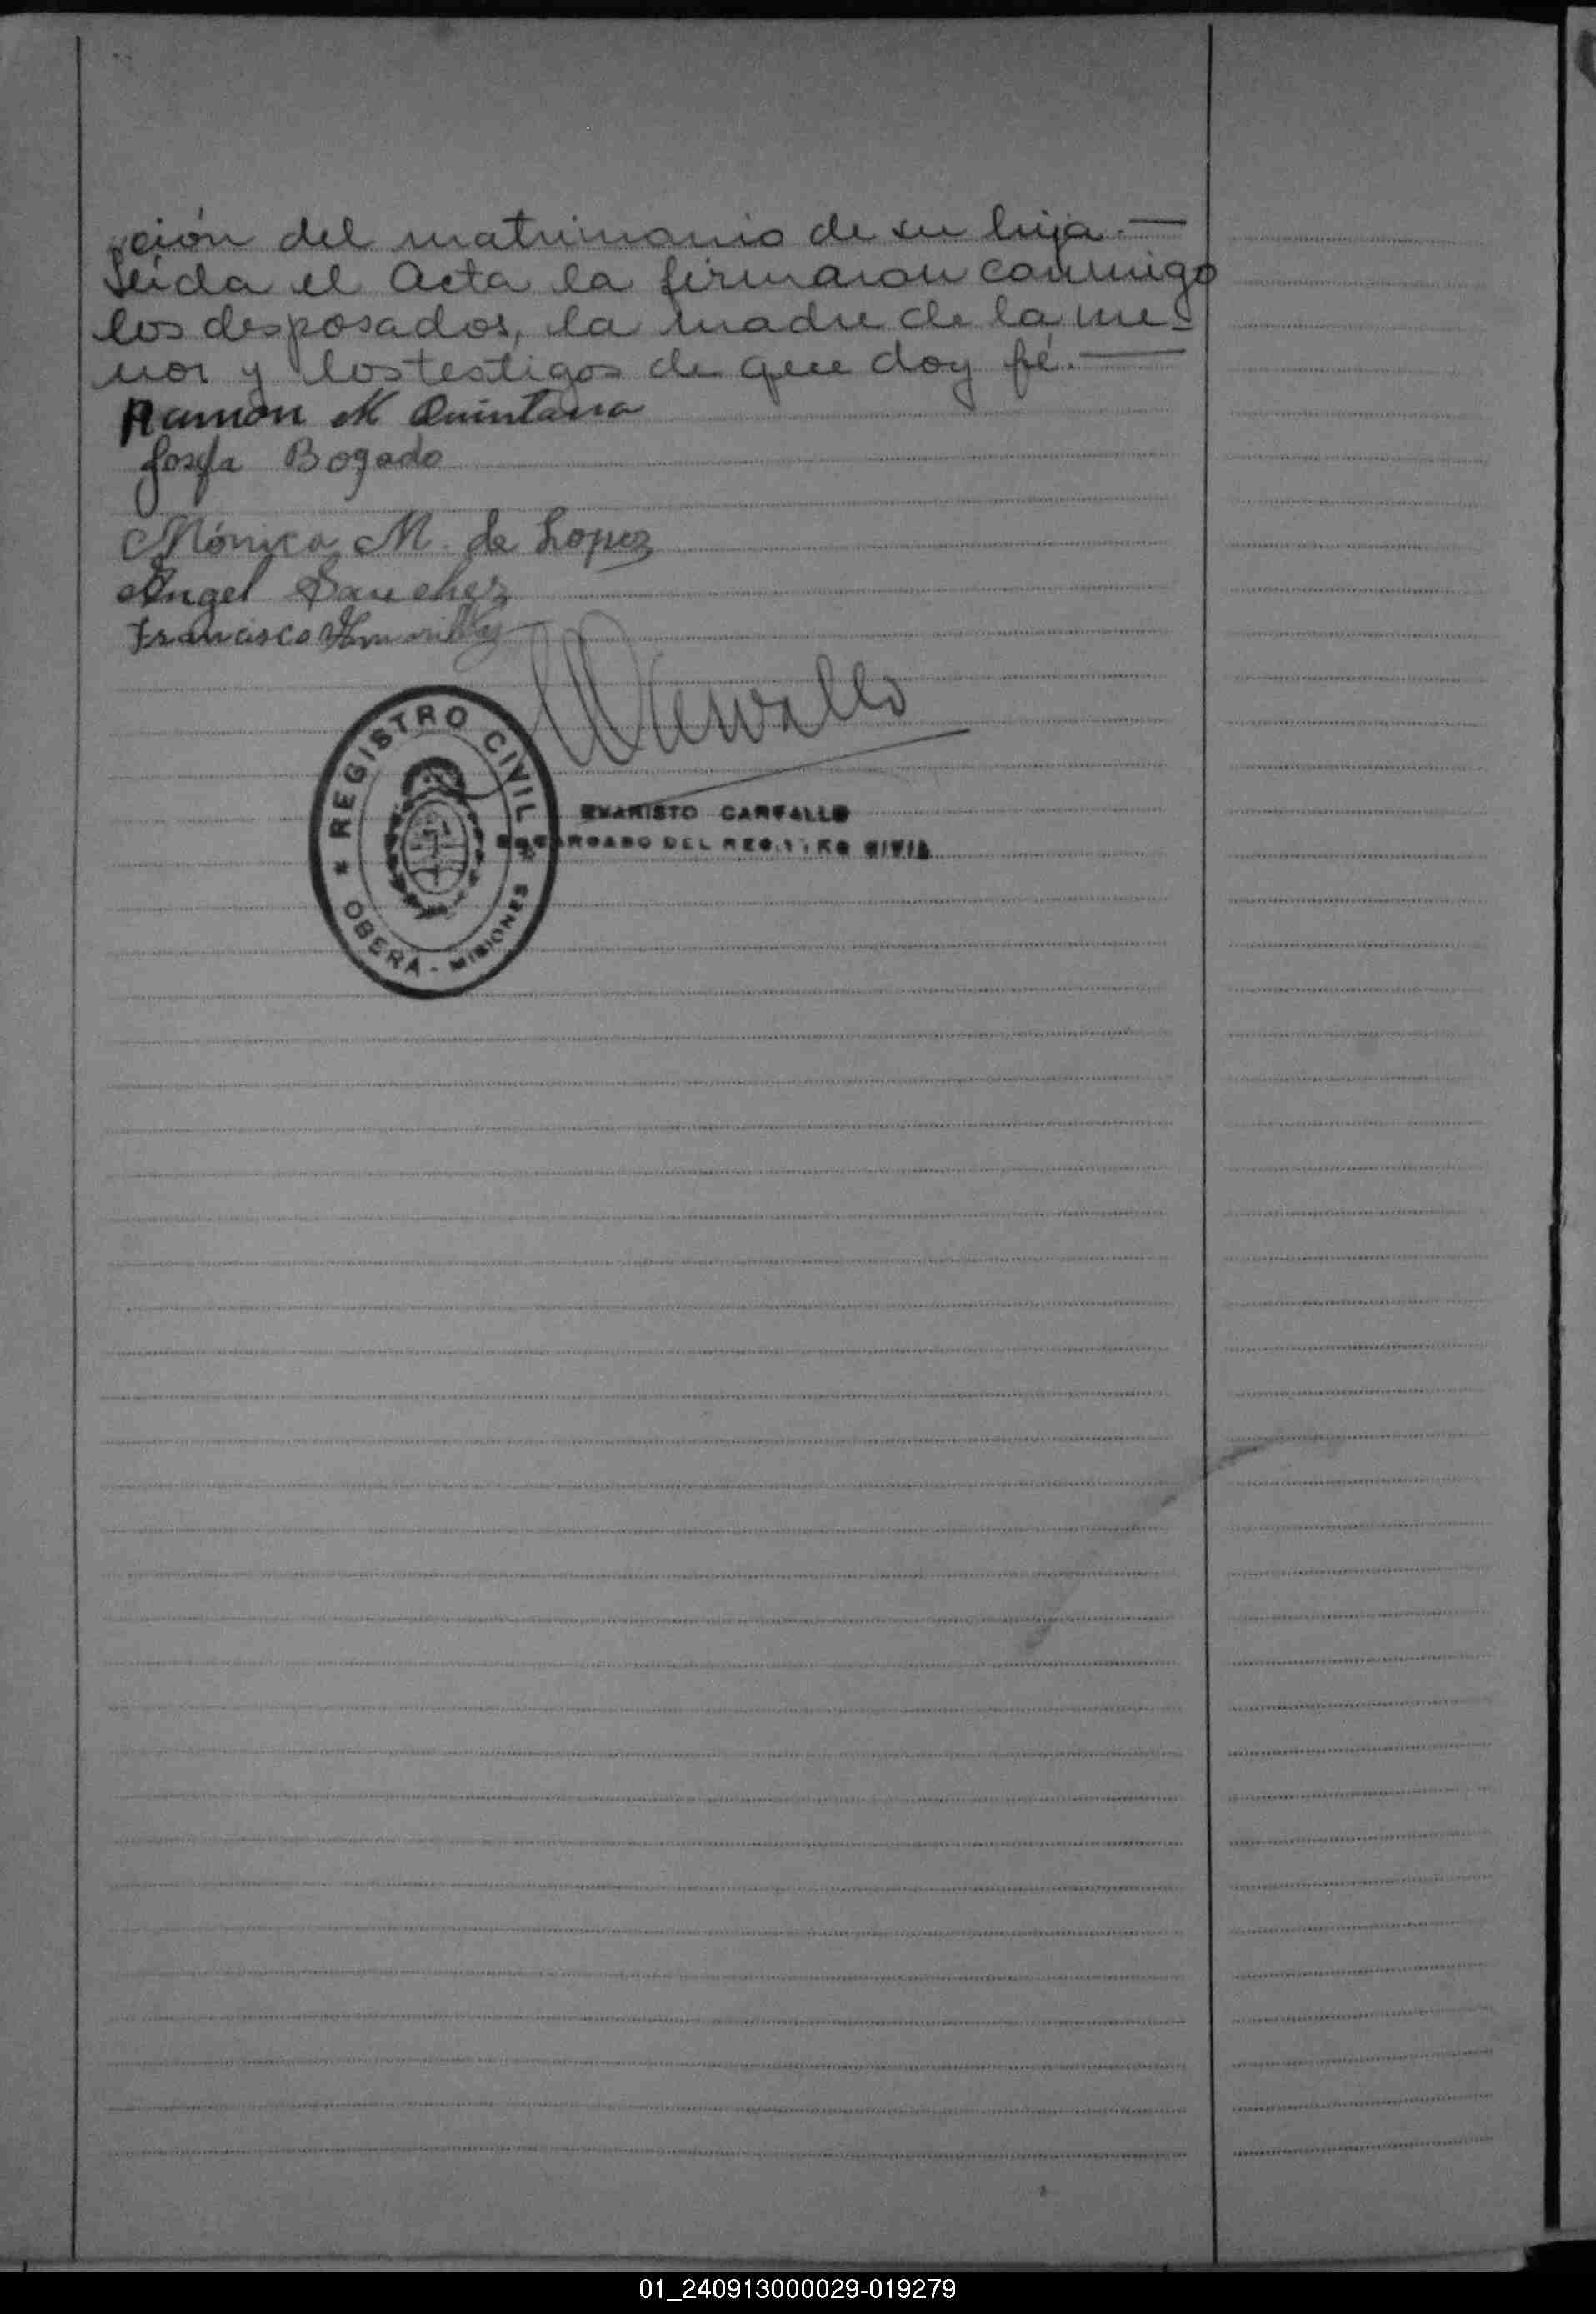 ción del matrimonio de su hija.—
Leida el Acta la firmaron conmigo
los desposados, la madre de la me-
nor y los testigos de que doy fé.—
Ramon M Quintana
Josefa Bogado
Mónica M. de Lopez
Angel Sanchez
Francisco
Carvallo
REGISTRO CIVIL
OBERÁ - MISIONES
EVARISTO CARVALLO
ENCARGADO DEL REGISTRO CIVIL
01_240913000029-019279